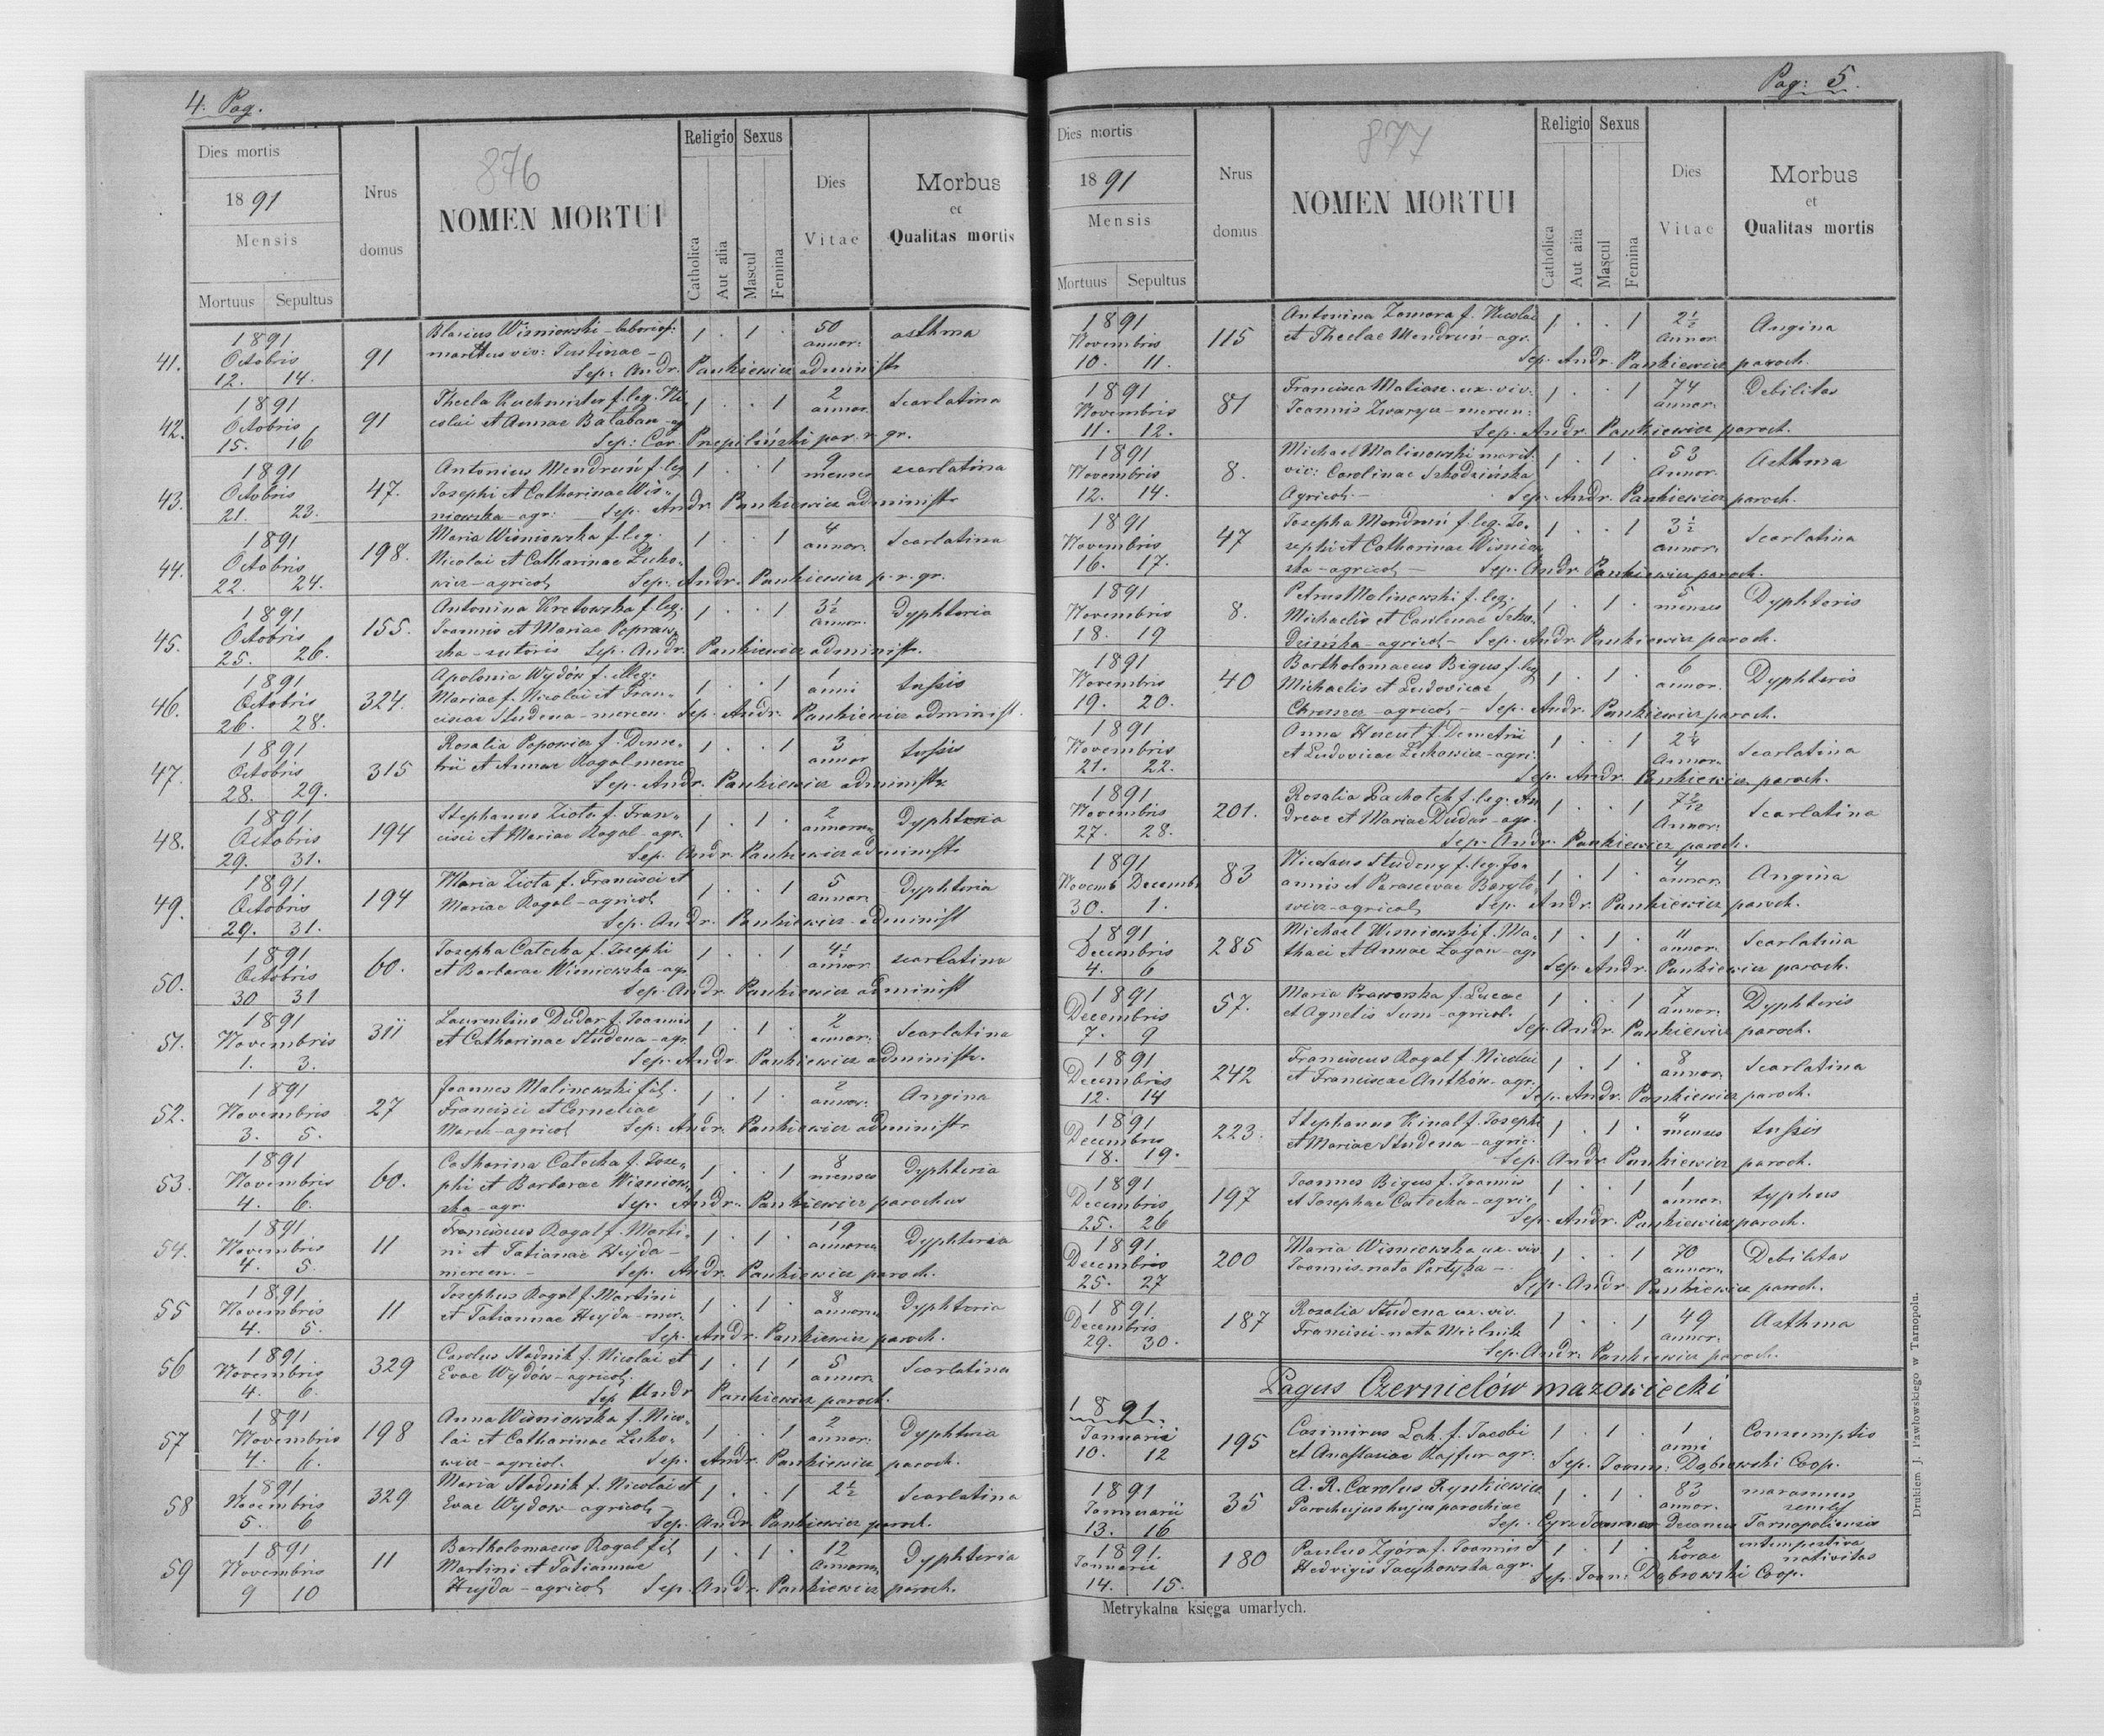 4. Pag.
Dies mortis
1891
Mensis
Mortuus Sepultus
Nrus
domus
876
NOMEN MORTUI
Religio Sexus
Catholica
Aut alia
Mascul
Femina
Dies
Vitae
Morbus
et
Qualitas mortis
41. 1891 Octobris 12. 14. 91
Blasius Wiśniowski - laborios:
viv: Justinae -
1 . 1 . 50 annor: asthma
Sep: Andr. Pankiewicz administr
42. 1891 Octobris 15. 16 91
Thecla Kuchmister f. leg. Ni
colai et Annae Bałaban - ag
1 . . 1 2 annor. Scarlatina
Sep: Car. par. r. gr.
43. 1891 Octobris 21. 23. 47.
Antonius Mendruń f. leg
Josephi et Catharinae Wiś-
niowska - agr:
1 . . 1 9 menses scarlatina
Sep. Andr. Pankiewicz administr
44. 1891 Octobris 22. 24. 198.
Maria Wiśniowska f. leg.
Nicolai et Catharinae Łuko-
wicz - agricol
1 . . 1 4 annor: Scarlatina
Sep. Andr. Pankiewicz p. r. gr.
45. 1891 Octobris 25. 26. 155.
Antonina Kretowska f. leg.
Joannis et Mariae Popraw-
ska - sutoris
1 . . 1 3½ annor. Dyphteria
Sep. Andr. Pankiewicz administr.
46. 1891 Octobris 26. 28. 324.
Apolonia Wydów f. illeg:
Mariae f. Nicolai et Fran-
ciscae Studena - mercen.
1 . . 1 1 anni tussis
Sep. Andr. Pankiewicz administ.
47. 1891 Octobris 28. 29. 315
Rosalia Popowicz f. Deme-
trii et Annae Rogal merce
1 . . 1 3 annor tussis
Sep. Andr. Pankiewicz administr.
48. 1891 Octobris 29. 31. 194
Stephanus Ziota f. Fran-
cisci et Mariae Rogal - agr.
1 . 1 . 2 annorum Dyphteria
Sep. Andr. Pankiewicz administr
49. 1891 Octobris 29. 31. 194
Maria Ziota f. Francisci et
Mariae Rogal - agricol
1 . . 1 5 annor. Dyphteria
Sep. Andr. Pankiewicz - administ
50. 1891 Octobris 30 31 60.
Josepha Catecha f. Josephi
et Barbarae Wiśniowska - agr
1 . . 1 4½ annor scarlatina
Sep. Andr. Pankiewicz administ
51. 1891 Novembris 1. 3. 311
Laurentius Dudar f. Joannis
et Catharinae Studena - agr.
1 . 1 . 2 annor: Scarlatina
Sep. Andr. Pankiewicz administr.
52. 1891 Novembris 3. 5. 27
Joannes Malinowski fil.
Francisci et Corneliae
March - agricol
1 . 1 . 2 annor: Angina
Sep: Andr. Pankiewicz administr
53. 1891 Novembris 4. 6. 60.
Catharina Catecha f. Jose-
phi et Barbarae Wiśniow-
ska - agr.
1 . . 1 8 menses Dyphteria
Sep. Andr. Pankiewicz parochus
54. 1891 Novembris 4. 5. 11
Franciscus Rogal f. Marti-
ni et Tatianae Hujda -
mercen. -
1 . 1 . 19 annorum Dyphteria
Sep. Andr. Pankiewicz paroch.
55 1891 Novembris 4. 5. 11
Josephus Rogal f. Martini
et Tatiannae Hujda - mer.
1 . 1 . 8 annorum Dyphteria
Sep. Andr. Pankiewicz paroch.
56 1891 Novembris 4. 6. 329
Carolus Stadnik f. Nicolai et
Evae Wydów - agricol.
1 . 1 1 5 annor. Scarlatina
Sep Andr Pankiewicz paroch.
57 1891 Novembris 4. 6. 198
Anna Wiśniowska f. Nico-
lai et Catharinae Łuko-
wicz - agricol.
1 . . 1 2 annor: Dyphteria
Sep. Andr. Pankiewicz paroch.
58 1891 Novembris 5. 6 329
Maria Stadnik f. Nicolai et
Evae Wydow - agricol -
1 . . 1 2½ Scarlatina
Sep. Andr. Pankiewicz paroch.
59 1891 Novembris 9 10 11
Bartholomaeus Rogal fil
Martini et Tatiannae
Hujda - agricol
1 . 1 . 12 annorum Dyphteria
Sep. Andr. Pankiewicz paroch.
Pag: 5.
Dies mortis
1891
Mensis
Mortuus Sepultus
Nrus
domus
877
NOMEN MORTUI
Religio Sexus
Catholica
Aut alia
Mascul
Femina
Dies
Vitae
Morbus
et
Qualitas mortis
1891 Novembris 10. 11. 115
Antonina Zamora f. Nicolai
et Theclae Mendruń - agr.
1 . . 1 2½ Annor. Angina
Sep. Andr. Pankiewicz paroch.
1891 Novembris 11. 12. 81
Francisca Maliasz. ux. viv:
Joannis Zwarycz - mercen:
1 . . 1 74 annor. Debilitas
Sep. Andr. Pankiewicz paroch.
1891 Novembris 12. 14. 8.
Michael Malinowski marit.
viv: Carolinae Szkodzińska
Agricol. -
1 . 1 . 53 Annor. Asthma
Sep. Andr. Pankiewicz paroch.
1891 Novembris 16. 17. 47
Josepha Mendruń f. leg. Jo-
sephi et Catharinae Wiśniow
ska - agricol -
1 . . 1 3½ annor. Scarlatina
Sep. Andr Pankiewicz paroch.
1891 Novembris 18. 19 8.
Petrus Malinowski f. leg.
Michaelis et Carolinae Szko-
dzińska - agricol -
1 . 1 . 5 menses Dyphteris
Sep. Andr. Pankiewicz paroch.
1891 Novembris 19. 20. 40
Bartholomaeus Bigus f. leg
Michaelis et Ludovicae
- agricol -
1 . 1 . 6 annor. Dyphteris
Sep. Andr. Pankiewicz paroch.
1891 Novembris 21. 22.
Anna f. Demetrii
et Ludovicae Łukowicz - agri.
1 . . 1 2¼ Annor. Scarlatina
Sep. Andr. Pankiewicz paroch.
1891 Novembris 27. 28. 201.
Rosalia f. leg. An
dreae et Mariae Dudar - agr.
1 . . 1 Annor. Scarlatina
Sep. Andr. Pankiewicz paroch.
1891 Novemb Decemb 30. 1. 83
Nicolaus Studeny f. leg. Jo-
annis et Parascevae Baryto-
wicz - agricol
1 . 1 . 4 annor. Angina
Sep. Andr. Pankiewicz paroch.
1891 Decembris 4. 6 285
Michael Wiśniowski f. Ma-
thaei et Annae Łagan - agr
1 . 1 . 11 annor. Scarlatina
Sep. Andr. Pankiewicz paroch.
1891 Decembris 7. 9 57.
Maria Praworska f. Lucae
et Agnetis Sum - agricol.
1 . . 1 7 annor. Dyphteris
Sep. Andr. Pankiewicz paroch.
1891 Decembris 12. 14 242
Franciscus Rogal f. Nicolai
et Franciscae Anthów - agr.
1 . 1 . 8 annor. Scarlatina
Sep. Andr. Pankiewicz paroch.
1891 Decembris 18. 19. 223.
Stephanus Kinal f. Josephi
et Mariae Studena - agric.
1 . 1 . 4 menses tussis
Sep. Andr Pankiewicz paroch.
1891 Decembris 25. 26 197
Joannes Bigus f. Joannis
et Josephae Catecha - agric
1 . . 1 1 annor. typhus
Sep. Andr. Pankiewicz paroch.
1891 Decembris 25. 27 200
Maria Wiśniowska ux. viv.
Joannis nata Partyka -
1 . . 1 70 annor. Debilitas
Sep. Andr. Pankiewicz paroch.
1891 Decembris 29. 30. 187
Rosalia Studena ux. viv.
Francisci - nata Mielnik
1 . . 1 49 annor. Asthma
Sep. Andr. Pankiewicz paroch.
Pagus Czernielów mazowiecki
1891 Januarii 10. 12 195
Casimirus Lak. f. Jacobi
et Anastasiae Kajfur agr.
1 . 1 . 1 anni Consumptio
Sep. Joann: Dąbrowski Coop.
1891 Januarii 13. 16 35
A. R. Carolus Rynkiewicz
Parochus hujus parochiae
1 . 1 . 83 annor. marasmus senilis
Sep. Decanus Tarnopoliensis
1891 Januarii 14. 15. 180
Paulus Zgóra f. Joannis et
Hedvigis agr.
1 . 1 . 2 horae intempestiva nativitas
Sep. Joan: Dąbrowski Coop.
Metrykalna księga umarłych.
Drukiem J. Pawłowskiego w Tarnopolu.